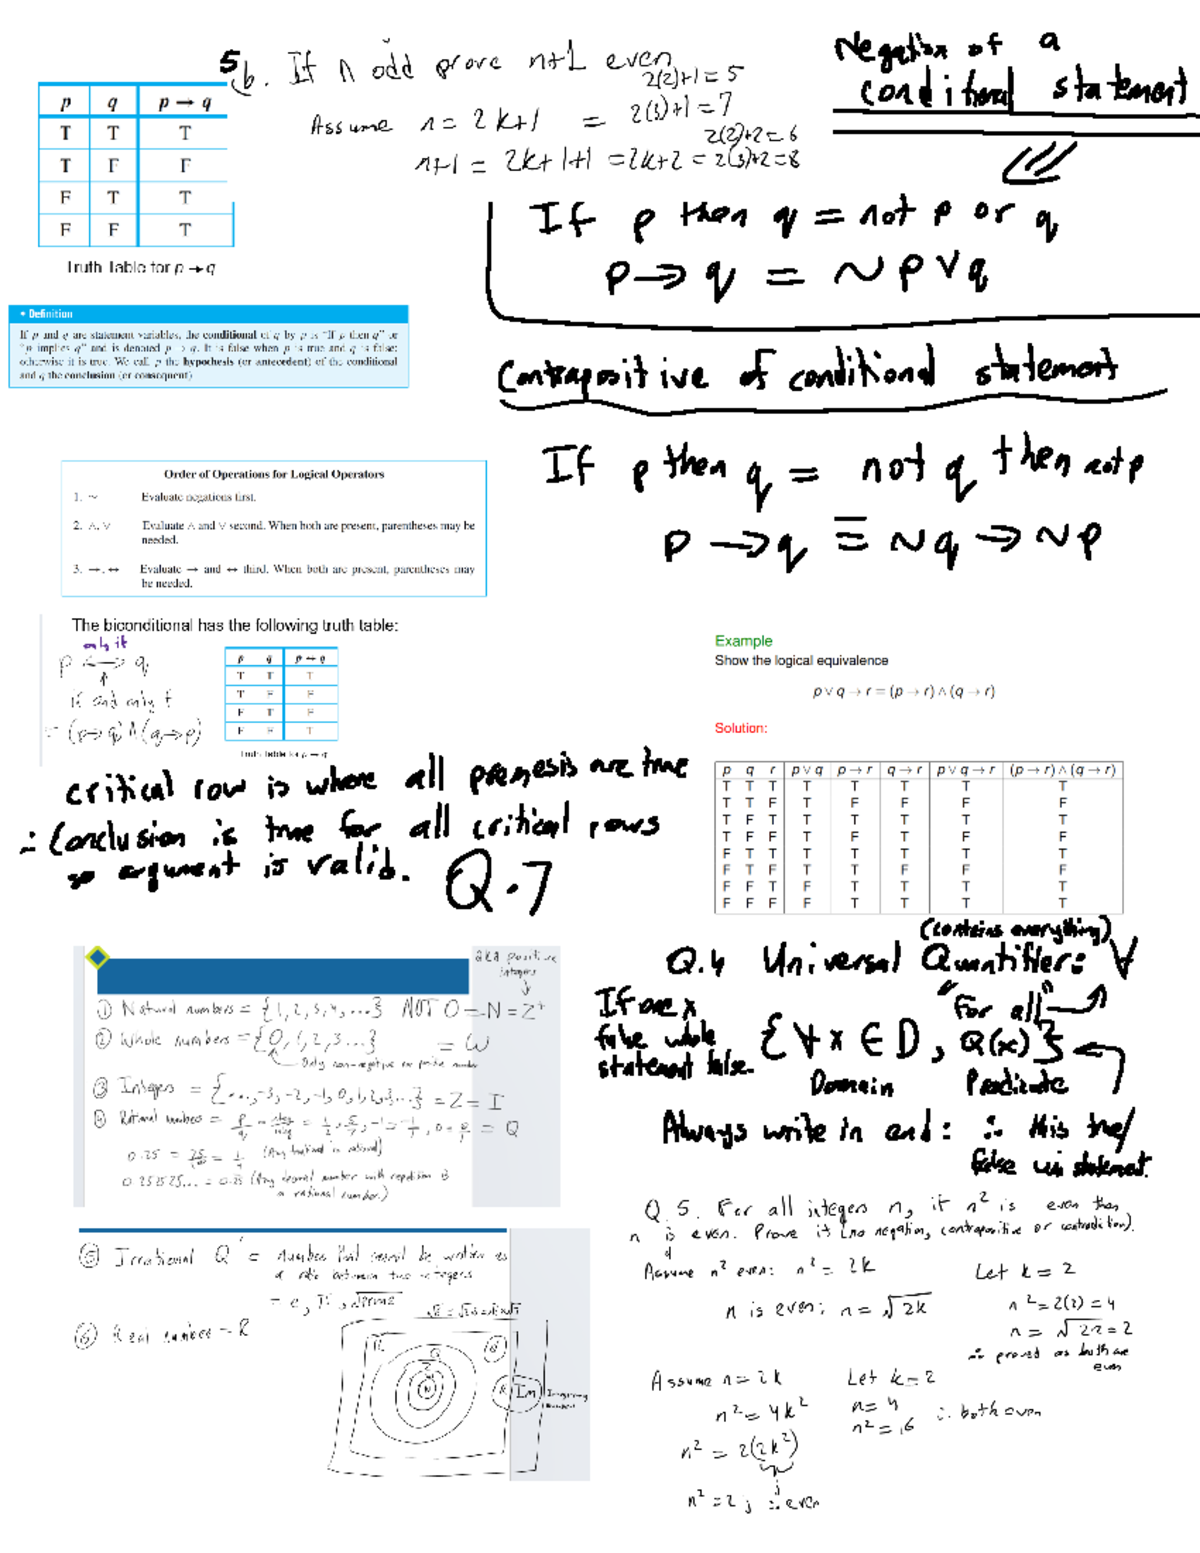 5b. If n odd prove n+1 even
2(2)+1 = 5
Assume n = 2k+1 = 2(3)+1 = 7
2(2)+2 = 6
n+1 = 2k+1+1 = 2k+2 = 2(3)+2 = 8
p q p → q
T T T
T F F
F T T
F F T
Truth Table for p → q
Negation of a
conditional statement
If p then q = not p or q
p → q = ~p ∨ q
• Definition
If p and q are statement variables, the conditional of q by p is "If p then q" or
"p implies q" and is denoted p → q. It is false when p is true and q is false;
otherwise it is true. We call p the hypothesis (or antecedent) of the conditional
and q the conclusion (or consequent)
Contrapositive of conditional statement
If p then q = not q then not p
p → q ≡ ~q → ~p
Order of Operations for Logical Operators
1. ~ Evaluate negations first.
2. ∧, ∨ Evaluate ∧ and ∨ second. When both are present, parentheses may be
needed.
3. →, ↔ Evaluate → and ↔ third. When both are present, parentheses may
be needed.
The biconditional has the following truth table:
only if
p ↔ q
if and only if
= (p→q) ∧ (q→p)
p q p ↔ q
T T T
T F F
F T F
F F T
Truth Table for p ↔ q
Example
Show the logical equivalence
p ∨ q → r = (p → r) ∧ (q → r)
Solution:
p q r p ∨ q p → r q → r p ∨ q → r (p → r) ∧ (q → r)
T T T T T T T T
T T F T F F F F
T F T T T T T T
T F F T F T F F
F T T T T T T T
F T F T T F F F
F F T F T T T T
F F F F T T T T
critical row is where all premesis are true
∴ Conclusion is true for all critical rows
so argument is valid. Q.7
(contains everything)
Q.4 Universal Quantifier: ∀
"For all"
If one x
false whole
statement false.
{∀ x ∈ D, Q(x)}
Domain Predicate
Always write in end: ∴ this true/
false in statement.
aka positive
integers
① Natural numbers = {1,2,3,4,...} NOT 0 = N = Z⁺
② Whole numbers = {0,1,2,3...} = W
③ Integers = {...,-3,-2,-1,0,1,2,3...} = Z = I
④ Rational numbers = p/q
= Q
0.25 = 25/100 = 1/4
0.252525... = 0.25 (Any decimal number with repetition is
a rational number.)
⑤ Irrational Q' = numbers that cannot be written as
a ratio between two integers
= e, π,
⑥ Real number = R
Im
Imaginary
Numbers
Q.5. For all integers n, if n² is even then
n is even. Prove it (no negation, contrapositive or contradiction).
Assume n² even: n² = 2k
n is even: n = √2k
Let k = 2
n² = 2(2) = 4
n = √2·2 = 2
∴ proved as both are
even
Assume n = 2k
n² = 4k²
n² = 2(2k²)
j
n² = 2j ∴ even
Let k = 2
n = 4
n² = 16 ∴ both even